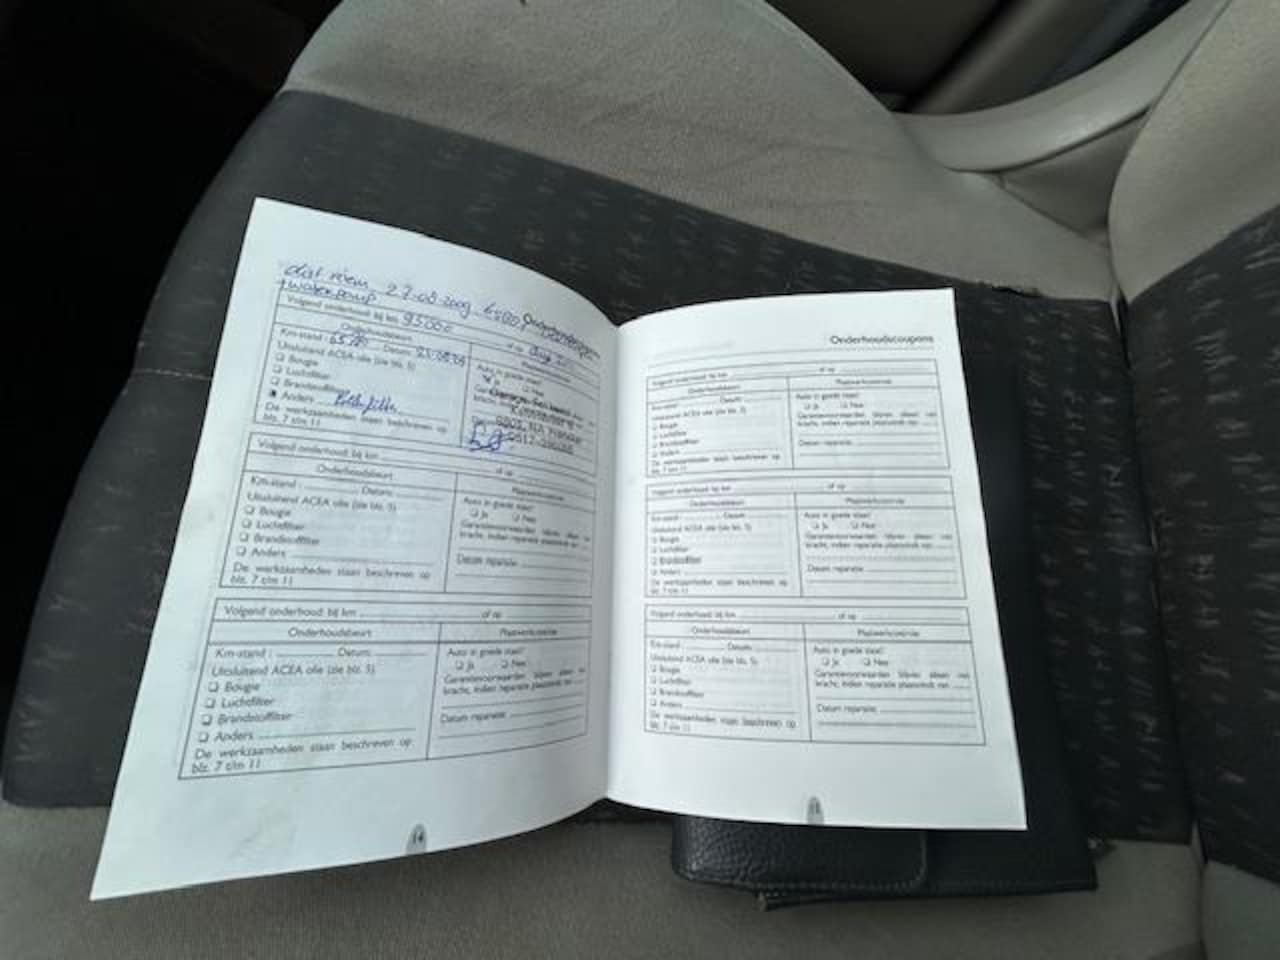 dist riem 27-08-2009
+ waterpomp
Volgend onderhoud: bij km 95000 of op Aug
Onderhoudsbeurt
Km-stand : Datum:
Uitsluitend ACEA olie (zie blz. 5)
❑ Bougie
❑ Luchtfilter
❑ Brandstoffilter
Anders
De werkzaamheden staan beschreven op
blz. 7 t/m 11
Auto in goede staat?
Ja ❑ Nee
Volgend onderhoud: bij km of op
Onderhoudsbeurt
Km-stand : Datum:
Uitsluitend ACEA olie (zie blz. 5)
❑ Bougie
❑ Luchtfilter
❑ Brandstoffilter
❑ Anders
De werkzaamheden staan beschreven op
blz. 7 t/m 11
Plaatwerkcontrole
Auto in goede staat?
❑ Ja ❑ Nee
Garantievoorwaarden blijven alleen van
kracht, indien reparatie plaatsvindt van
Datum reparatie:
Volgend onderhoud: bij km of op
Onderhoudsbeurt
Km-stand : Datum:
Uitsluitend ACEA olie (zie blz. 5)
❑ Bougie
❑ Luchtfilter
❑ Brandstoffilter
❑ Anders
De werkzaamheden staan beschreven op
blz. 7 t/m 11
Plaatwerkcontrole
Auto in goede staat?
❑ Ja ❑ Nee
Garantievoorwaarden blijven alleen van
kracht, indien reparatie plaatsvindt van
Datum reparatie:
14
Onderhoudscoupons
Volgend onderhoud: bij km of op
Onderhoudsbeurt
Km-stand : Datum:
Uitsluitend ACEA olie (zie blz. 5)
❑ Bougie
❑ Luchtfilter
❑ Brandstoffilter
❑ Anders
De werkzaamheden staan beschreven op
blz. 7 t/m 11
Plaatwerkcontrole
Auto in goede staat?
❑ Ja ❑ Nee
Garantievoorwaarden blijven alleen van
kracht, indien reparatie plaatsvindt van
Datum reparatie:
Volgend onderhoud: bij km of op
Onderhoudsbeurt
Km-stand : Datum:
Uitsluitend ACEA olie (zie blz. 5)
❑ Bougie
❑ Luchtfilter
❑ Brandstoffilter
❑ Anders
De werkzaamheden staan beschreven op
blz. 7 t/m 11
Plaatwerkcontrole
Auto in goede staat?
❑ Ja ❑ Nee
Garantievoorwaarden blijven alleen van
kracht, indien reparatie plaatsvindt van
Datum reparatie:
Volgend onderhoud: bij km of op
Onderhoudsbeurt
Km-stand : Datum:
Uitsluitend ACEA olie (zie blz. 5)
❑ Bougie
❑ Luchtfilter
❑ Brandstoffilter
❑ Anders
De werkzaamheden staan beschreven op
blz. 7 t/m 11
Plaatwerkcontrole
Auto in goede staat?
❑ Ja ❑ Nee
Garantievoorwaarden blijven alleen van
kracht, indien reparatie plaatsvindt van
Datum reparatie:
15